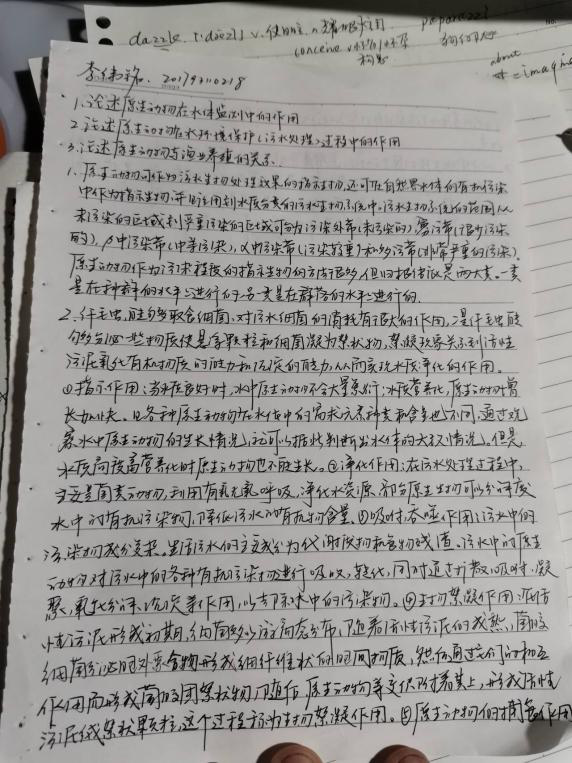 dazzle
v.使眼花 n.耀眼的光
paparazzi
狗仔队
conceive
构思
about
= imagine
李伟铭 20179110218
1.论述原生动物在水体监测中的作用
2.论述原生动物在水环境保护(污水处理)过程中的作用
3.论述原生动物与渔业养殖的关系.
1.原生动物可作为污水生物处理效果的指示生物,还可在自然界水体的有机污染
中作为指示生物,并且应用到水质分类的污水生物系统中。污水生物系统的范围从
未污染的区域到严重污染的区域可分为污染外带(未污染的),寡污带(很少污染
的),β中污染带(中等污染),α中污染带(污染较重)和多污带(非常严重的污染)。
原生动物作为污染程度的指示生物的方法很多,但归根结底是两大类。一类
是在种群的水平上进行的,另一类是在群落的水平上进行的.
2.纤毛虫,能够取食细菌,对污水细菌的消耗有很大的作用,是纤毛虫能
够分泌一些物质使悬浮颗粒和细菌凝为絮状物,絮凝现象关系到活性
污泥氧化有机物质的能力和沉淀的能力,从而实现水质净化的作用。
①指示作用:当水质良好时,水中原生动物不会大量繁衍;水质营养化,原生动物增
长加快。且各种原生动物在水体中的需求元素种类和含量也不同,通过观
察水中原生动物的生长情况,就可以据此判断出水体的大致情况。但是,
水质向极高营养化时原生动物也不能生长。②净化作用:在污水处理过程中,
主要是菌类动物,利用有氧无氧呼吸,净化水资源,部分原生生物可以分解废
水中的有机污染物,降低污水的有机物含量。③吸附吞噬作用:污水中的
污染物成分复杂。生活污水的主要成分为代谢废物和食物残渣。污水中的原生
动物对污水中的各种有机污染物进行吸收,转化,同时通过扩散吸附,凝
聚,氧化分解,沉淀等作用,以去除水中的污染物。④生物絮凝作用:在活
性污泥形成初期,细菌多以游离态分布,随着活性污泥的成熟,菌胶
细菌分泌的外聚合物形成细纤维状的胞间物质,然后通过它们的相互
作用而形成菌胶团絮状物,随后,原生动物等变便附着其上,形成活性
污泥绒絮状颗粒,这个过程称为生物絮凝作用。⑤原生动物的捕食作用